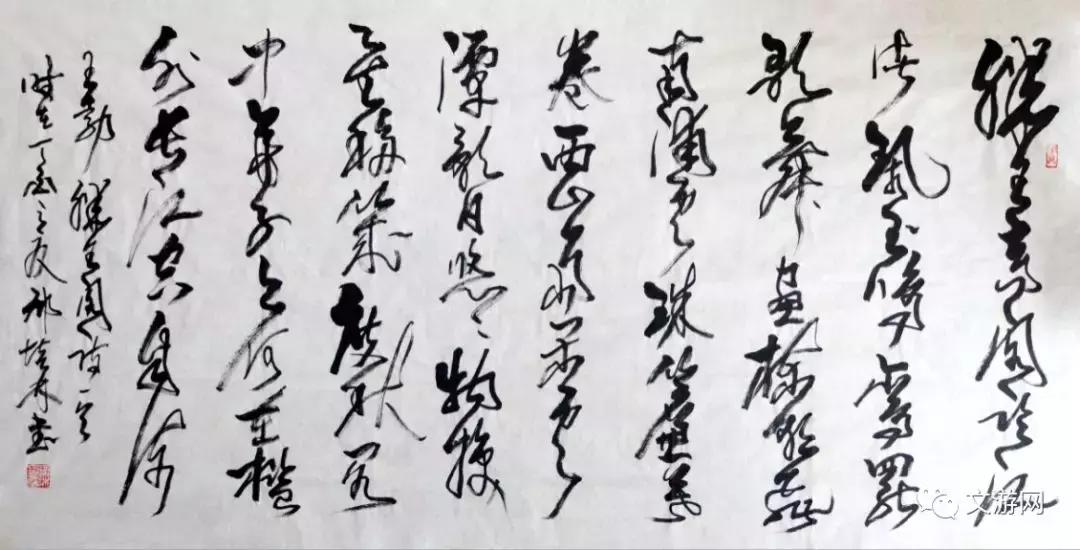 滕王高阁临江
渚珮玉鸣鸾罷
歌舞画棟朝飛
南浦云珠簾暮
卷西山雨闲云
潭影日悠々物换
星移几度秋阁
中帝子今何在槛
外长江空自流
王勃滕王阁诗一首
时在丁酉之 书
文游网